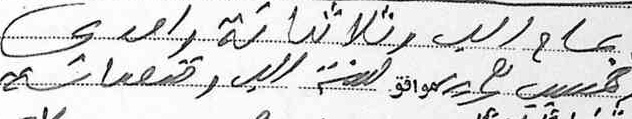 عام الف وثلاثمائة واحدى
وخمسين هجرية موافق لسنة الف وتسعمائة